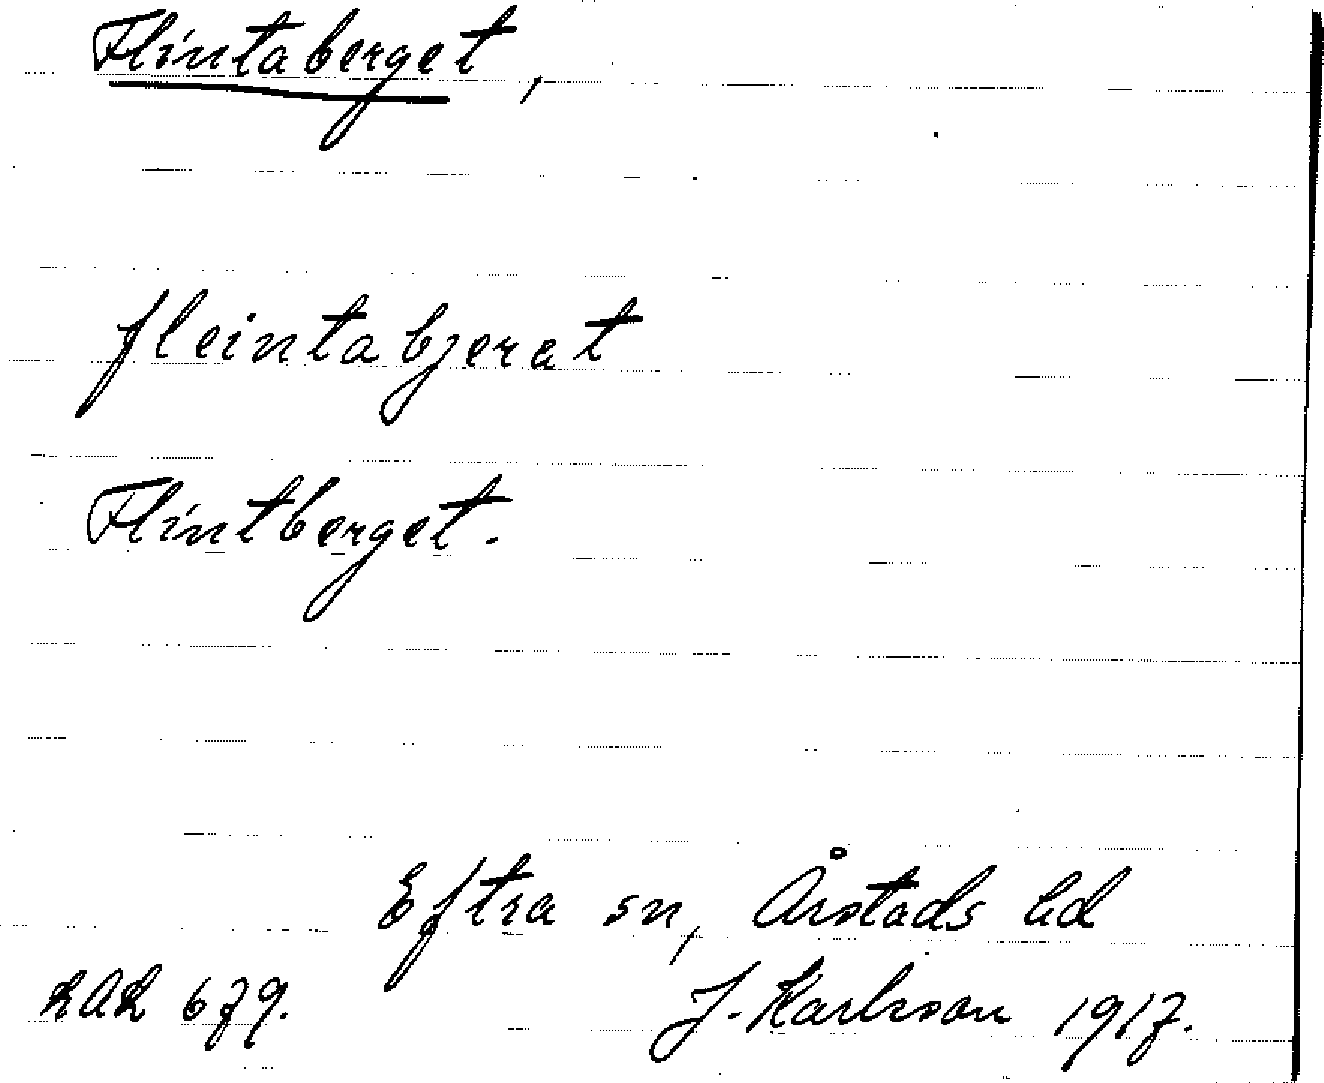 Flintaberget,
fleintabjerat
Flintberget.
Eftra sn, Årstads hd
LAL 679. J. Karlsson 1917.